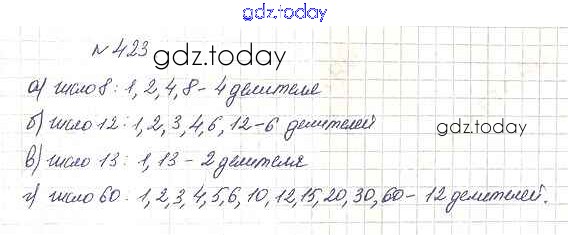 gdz.today
№ 423 gdz.today
а) число 8: 1, 2, 4, 8 - 4 делителя
б) число 12: 1, 2, 3, 4, 6, 12 - 6 делителей
gdz.today
в) число 13: 1, 13 - 2 делителя
г) число 60: 1, 2, 3, 4, 5, 6, 10, 12, 15, 20, 30, 60 - 12 делителей.